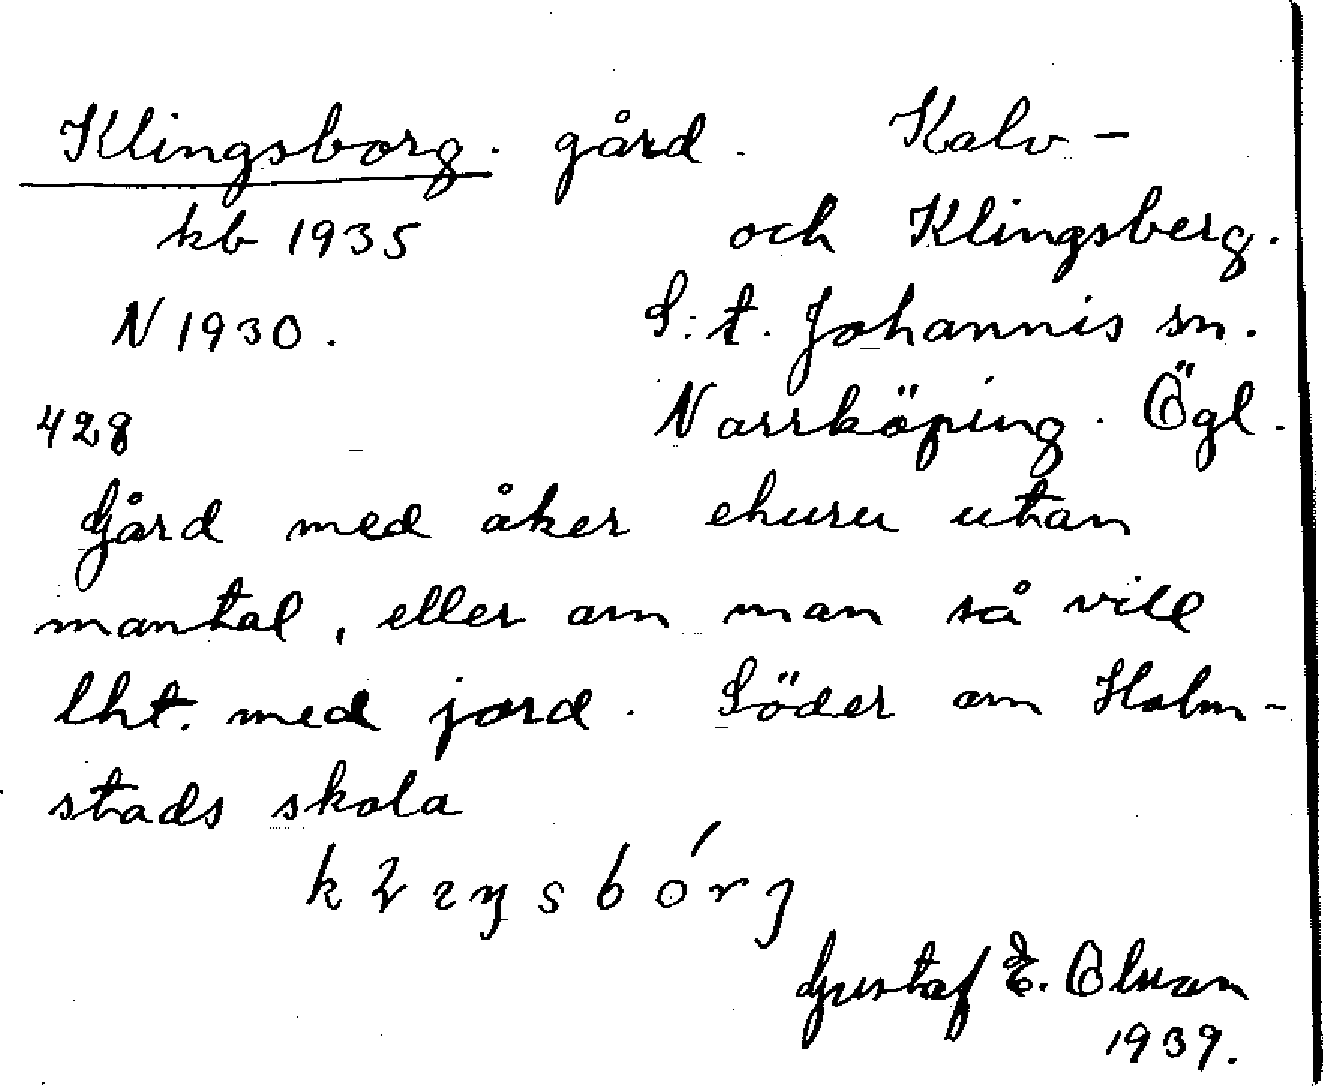 Klingsborg. gård. Kalv-
kb 1935 och Klingsberg.
N 1930. S:t. Johannis sn.
428 Norrköping. Ögl.
Gård med åker ehuru utan
mantal, eller om man så vill
lht. med jord. Söder om Holm-
stads skola
Gustaf E. Olson
1939.